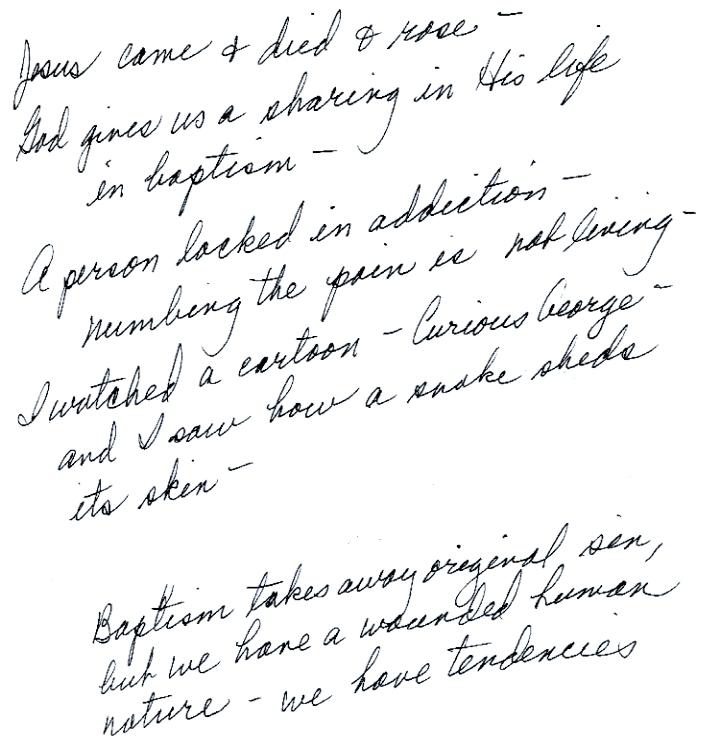 Jesus came & died & rose -
God gives us a sharing in His life
in baptism -
A person locked in addiction -
numbing the pain is not living -
I watched a cartoon - Curious George -
and I saw how a snake sheds
its skin -
Baptism takes away original sin,
but we have a wounded human
nature - we have tendencies